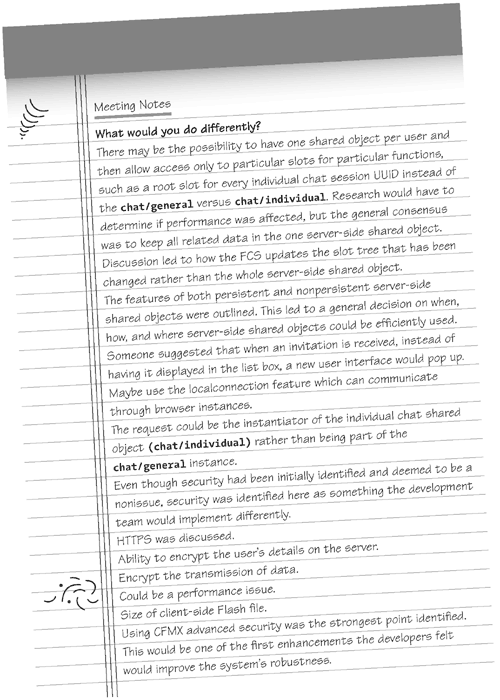 Meeting Notes
What would you do differently?
There may be the possibility to have one shared object per user and
then allow access only to particular slots for particular functions,
such as a root slot for every individual chat session UUID instead of
the chat/general versus chat/individual. Research would have to
determine if performance was affected, but the general consensus
was to keep all related data in the one server-side shared object.
Discussion led to how the FCS updates the slot tree that has been
changed rather than the whole server-side shared object.
The features of both persistent and nonpersistent server-side
shared objects were outlined. This led to a general decision on when,
how, and where server-side shared objects could be efficiently used.
Someone suggested that when an invitation is received, instead of
having it displayed in the list box, a new user interface would pop up.
Maybe use the localconnection feature which can communicate
through browser instances.
The request could be the instantiator of the individual chat shared
object (chat/individual) rather than being part of the
chat/general instance.
Even though security had been initially identified and deemed to be a
nonissue, security was identified here as something the development
team would implement differently.
HTTPS was discussed.
Ability to encrypt the user's details on the server.
Encrypt the transmission of data.
Could be a performance issue.
Size of client-side Flash file.
Using CFMX advanced security was the strongest point identified.
This would be one of the first enhancements the developers felt
would improve the system's robustness.